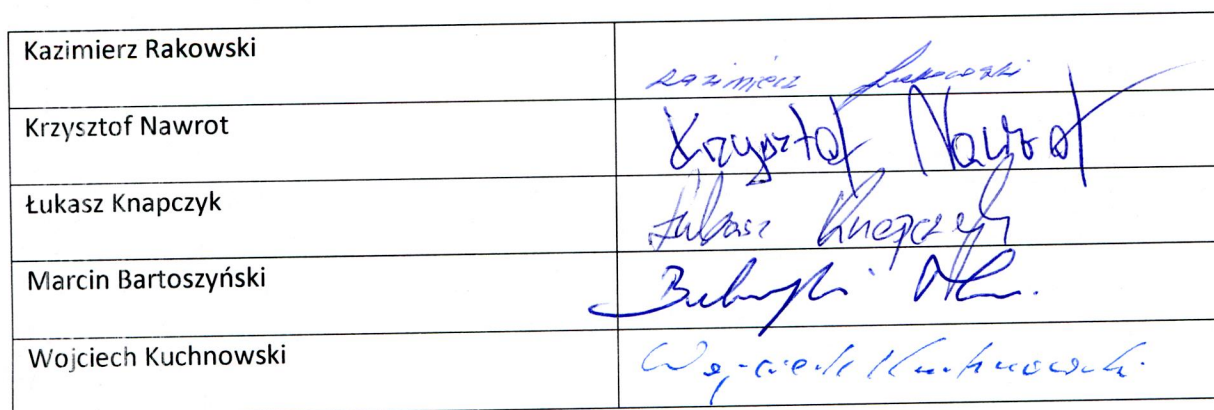 Kazimierz Rakowski
Kazimierz Rakowski
Krzysztof Nawrot
Krzysztof Nawrot
Łukasz Knapczyk
Łukasz Knapczyk
Marcin Bartoszyński
Wojciech Kuchnowski
Wojciech Kuchnowski